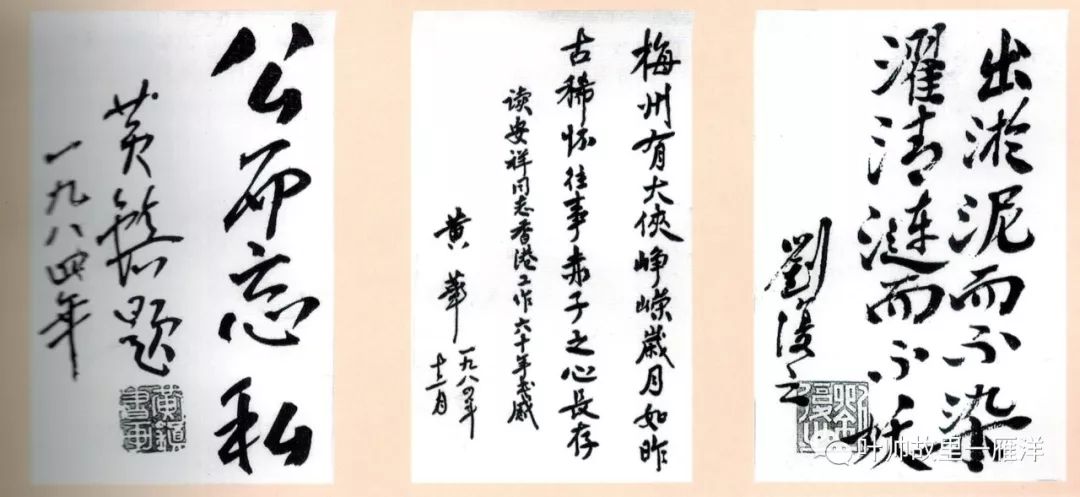 公而忘私
黄鎮题
一九八四年
黄鎮書画
梅州有大侠峥嵘歲月如昨
古稀怀往事赤子之心長存
读安祥同志香港工作六十年感
黄華
一九八四年
十二月
出淤泥而不染
濯清漣而不妖
劉復之
叶帅故里一雁洋